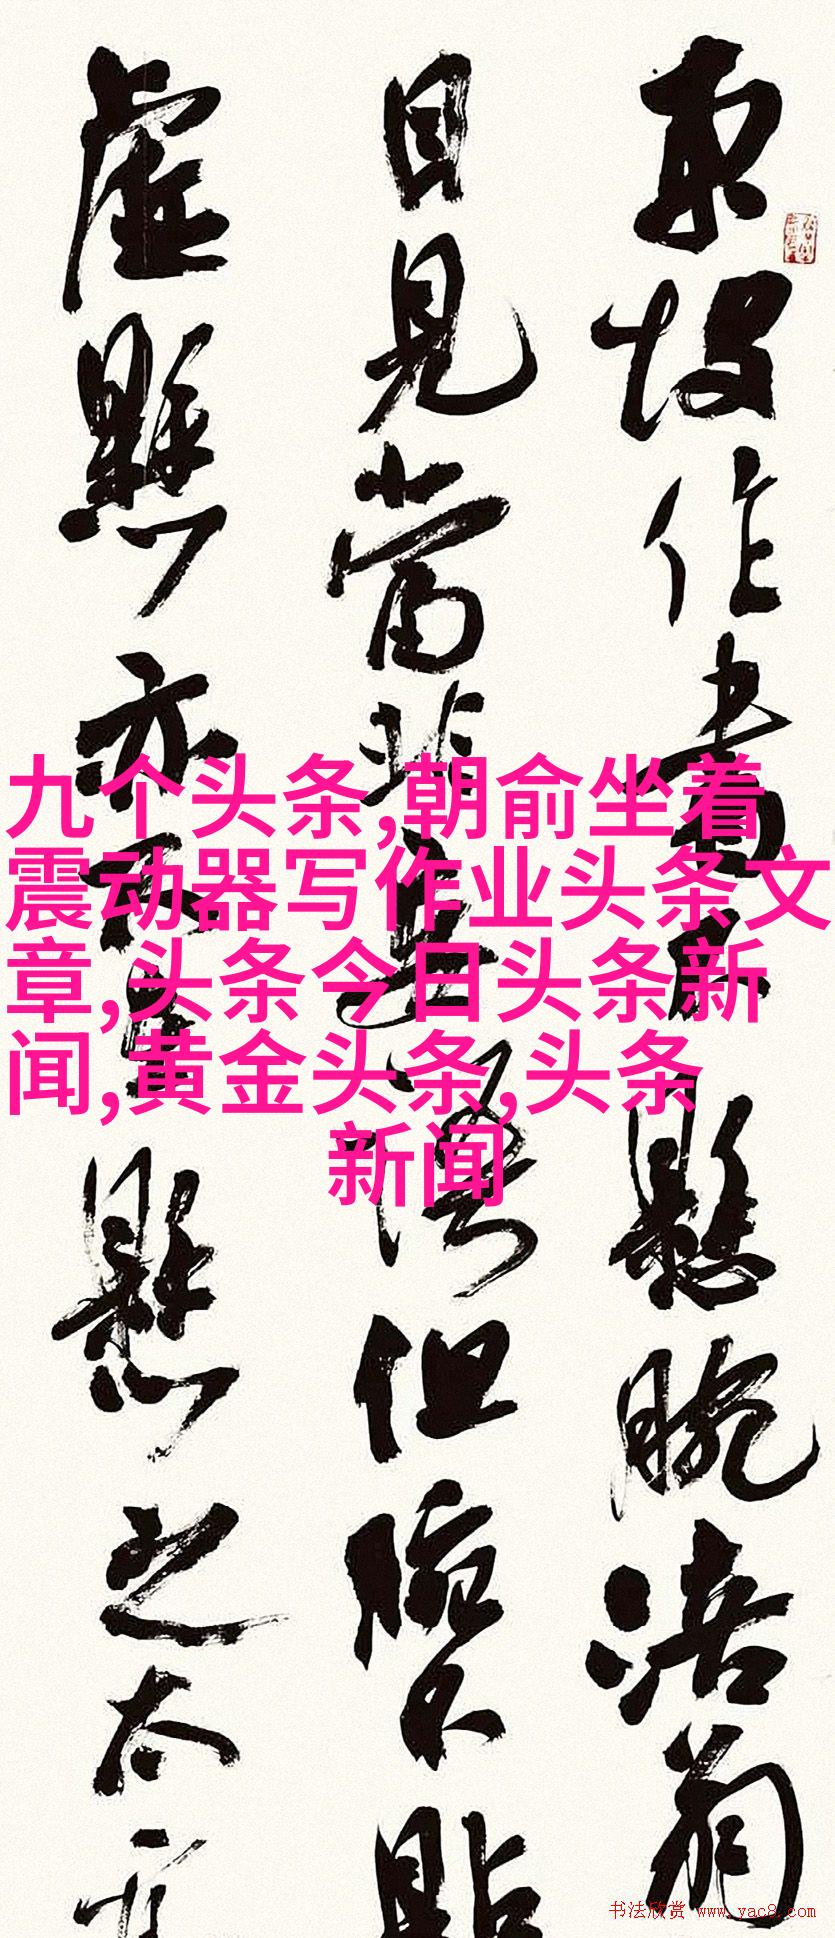 東坡作書不懸腕涪翁
目見當非妄語但腕不貼
虛懸亦不懸之太
九个头条,朝俞坐着
震动器写作业头条文
章,头条今日头条新
闻,黄金头条,头条
新闻
书法欣赏 www.yac8.com